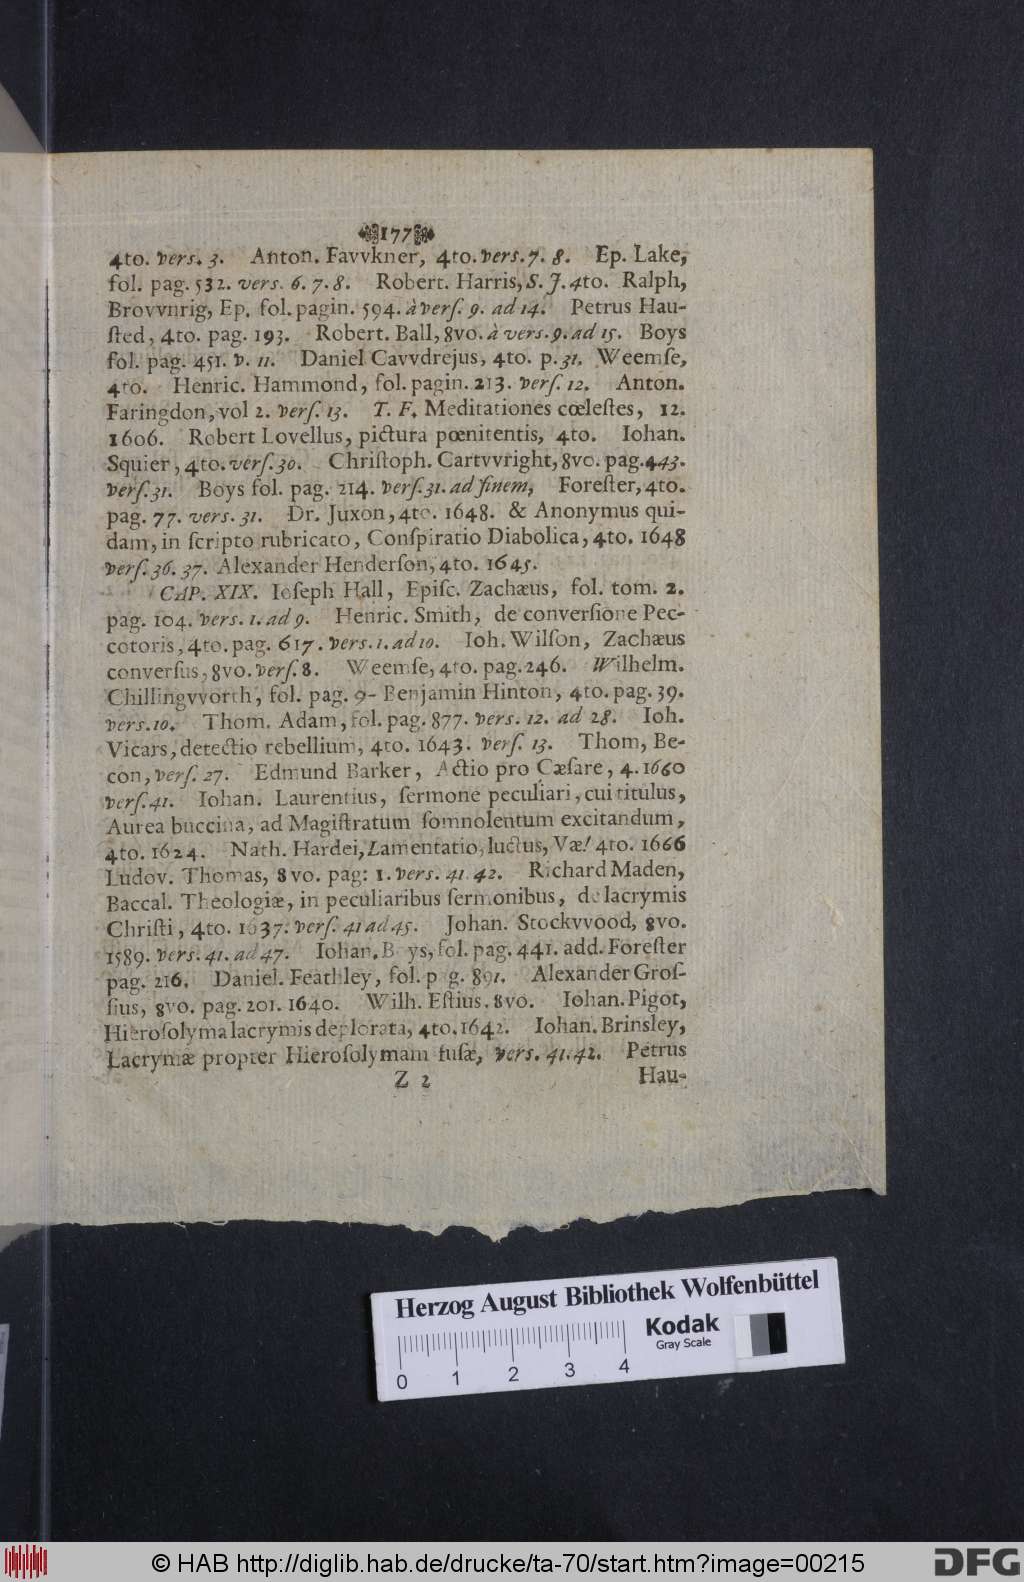 177
4to. vers. 3. Anton. Favvkner, 4to. vers. 7. 8. Ep. Lake,
fol. pag. 532. vers. 6. 7. 8. Robert. Harris, S. J. 4to. Ralph,
Brovvnrig, Ep. fol. pagin. 594. à verſ. 9. ad 14. Petrus Hau-
ſted, 4to. pag. 193. Robert. Ball, 8vo. à vers. 9. ad 15. Boys
fol. pag. 451. v. 11. Daniel Cavvdrejus, 4to. p. 31. Weemſe,
4to. Henric. Hammond, fol. pagin. 213. verſ. 12. Anton.
Faringdon, vol 2. verſ. 13. T. F. Meditationes cœleſtes, 12.
1606. Robert Lovellus, pictura pœnitentis, 4to. Iohan.
Squier, 4to. verſ. 30. Chriſtoph. Cartvvright, 8vo. pag. 443.
verſ. 31. Boys fol. pag. 214. verſ. 31. ad finem, Foreſter, 4to.
pag. 77. vers. 31. Dr. Juxon, 4to. 1648. & Anonymus qui-
dam, in ſcripto rubricato, Conſpiratio Diabolica, 4to. 1648
verſ. 36. 37. Alexander Henderſon, 4to. 1645.
CAP. XIX. Ioſeph Hall, Epiſc. Zachæus, fol. tom. 2.
pag. 104. vers. 1. ad 9. Henric. Smith, de converſione Pec-
cotoris, 4to. pag. 617. vers. 1. ad 10. Ioh. Wilſon, Zachæus
converſus, 8vo. verſ. 8. Weemſe, 4to. pag. 246. Wilhelm.
Chillingvvorth, fol. pag. 9- Benjamin Hinton, 4to. pag. 39.
vers. 10. Thom. Adam, fol. pag. 877. vers. 12. ad 28. Ioh.
Vicars, detectio rebellium, 4to. 1643. verſ. 13. Thom, Be-
con, verſ. 27. Edmund Barker, Actio pro Cæſare, 4. 1660
verſ. 41. Iohan. Laurentius, ſermone peculiari, cui titulus,
Aurea buccina, ad Magiſtratum ſomnolentum excitandum,
4to. 1624. Nath. Hardei, Lamentatio, luctus, Væ! 4to. 1666
Ludov. Thomas, 8vo. pag: 1. vers. 41. 42. Richard Maden,
Baccal. Theologiæ, in peculiaribus ſermonibus, de lacrymis
Chriſti, 4to. 1637. verſ. 41 ad 45. Johan. Stockvvood, 8vo.
1589. vers. 41. ad 47. Iohan. Boys, fol. pag. 441. add. Foreſter
pag. 216. Daniel. Feathley, fol. pag. 891. Alexander Groſ-
ſius, 8vo. pag. 201. 1640. Wilh. Eſtius. 8vo. Iohan. Pigot,
Hieroſolyma lacrymis deplorata, 4to. 1642. Iohan. Brinsley,
Lacrymæ propter Hieroſolymam fuſæ, vers. 41. 42. Petrus
Z 2 Hau-
Herzog August Bibliothek Wolfenbüttel
Kodak
Gray Scale
0 1 2 3 4
© HAB http://diglib.hab.de/drucke/ta-70/start.htm?image=00215
DFG